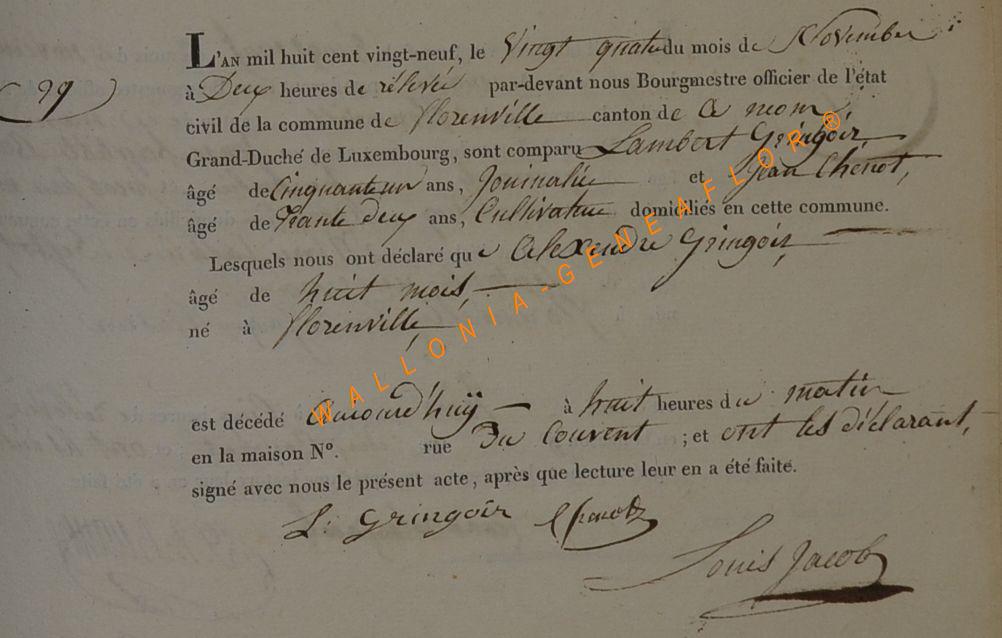 L'AN mil huit cent vingt-neuf, le Vingt quatre du mois de Novembre
29
à Deux heures de rélevée par-devant nous Bourgmestre officier de l'état
civil de la commune de florenville canton de Ce nom,
Grand-Duché de Luxembourg, sont comparu Lambert Gringoir,
âgé de Cinquanteun ans, Journalier et Jean Chenot,
âgé de Trante deux ans, Cultivateur domiciliés en cette commune.
Lesquels nous ont déclaré que Alexendre Gringoir,
âgé de huit mois,
né à florenville,
est décédé aujourd'huÿ à huit heures du matin
en la maison N° rue Du Couvent ; et ont les déclarant,
signé avec nous le présent acte, après que lecture leur en a été faite.
L. gringoir
Louis Jacob
WALLONIA-GENEAFLOR®